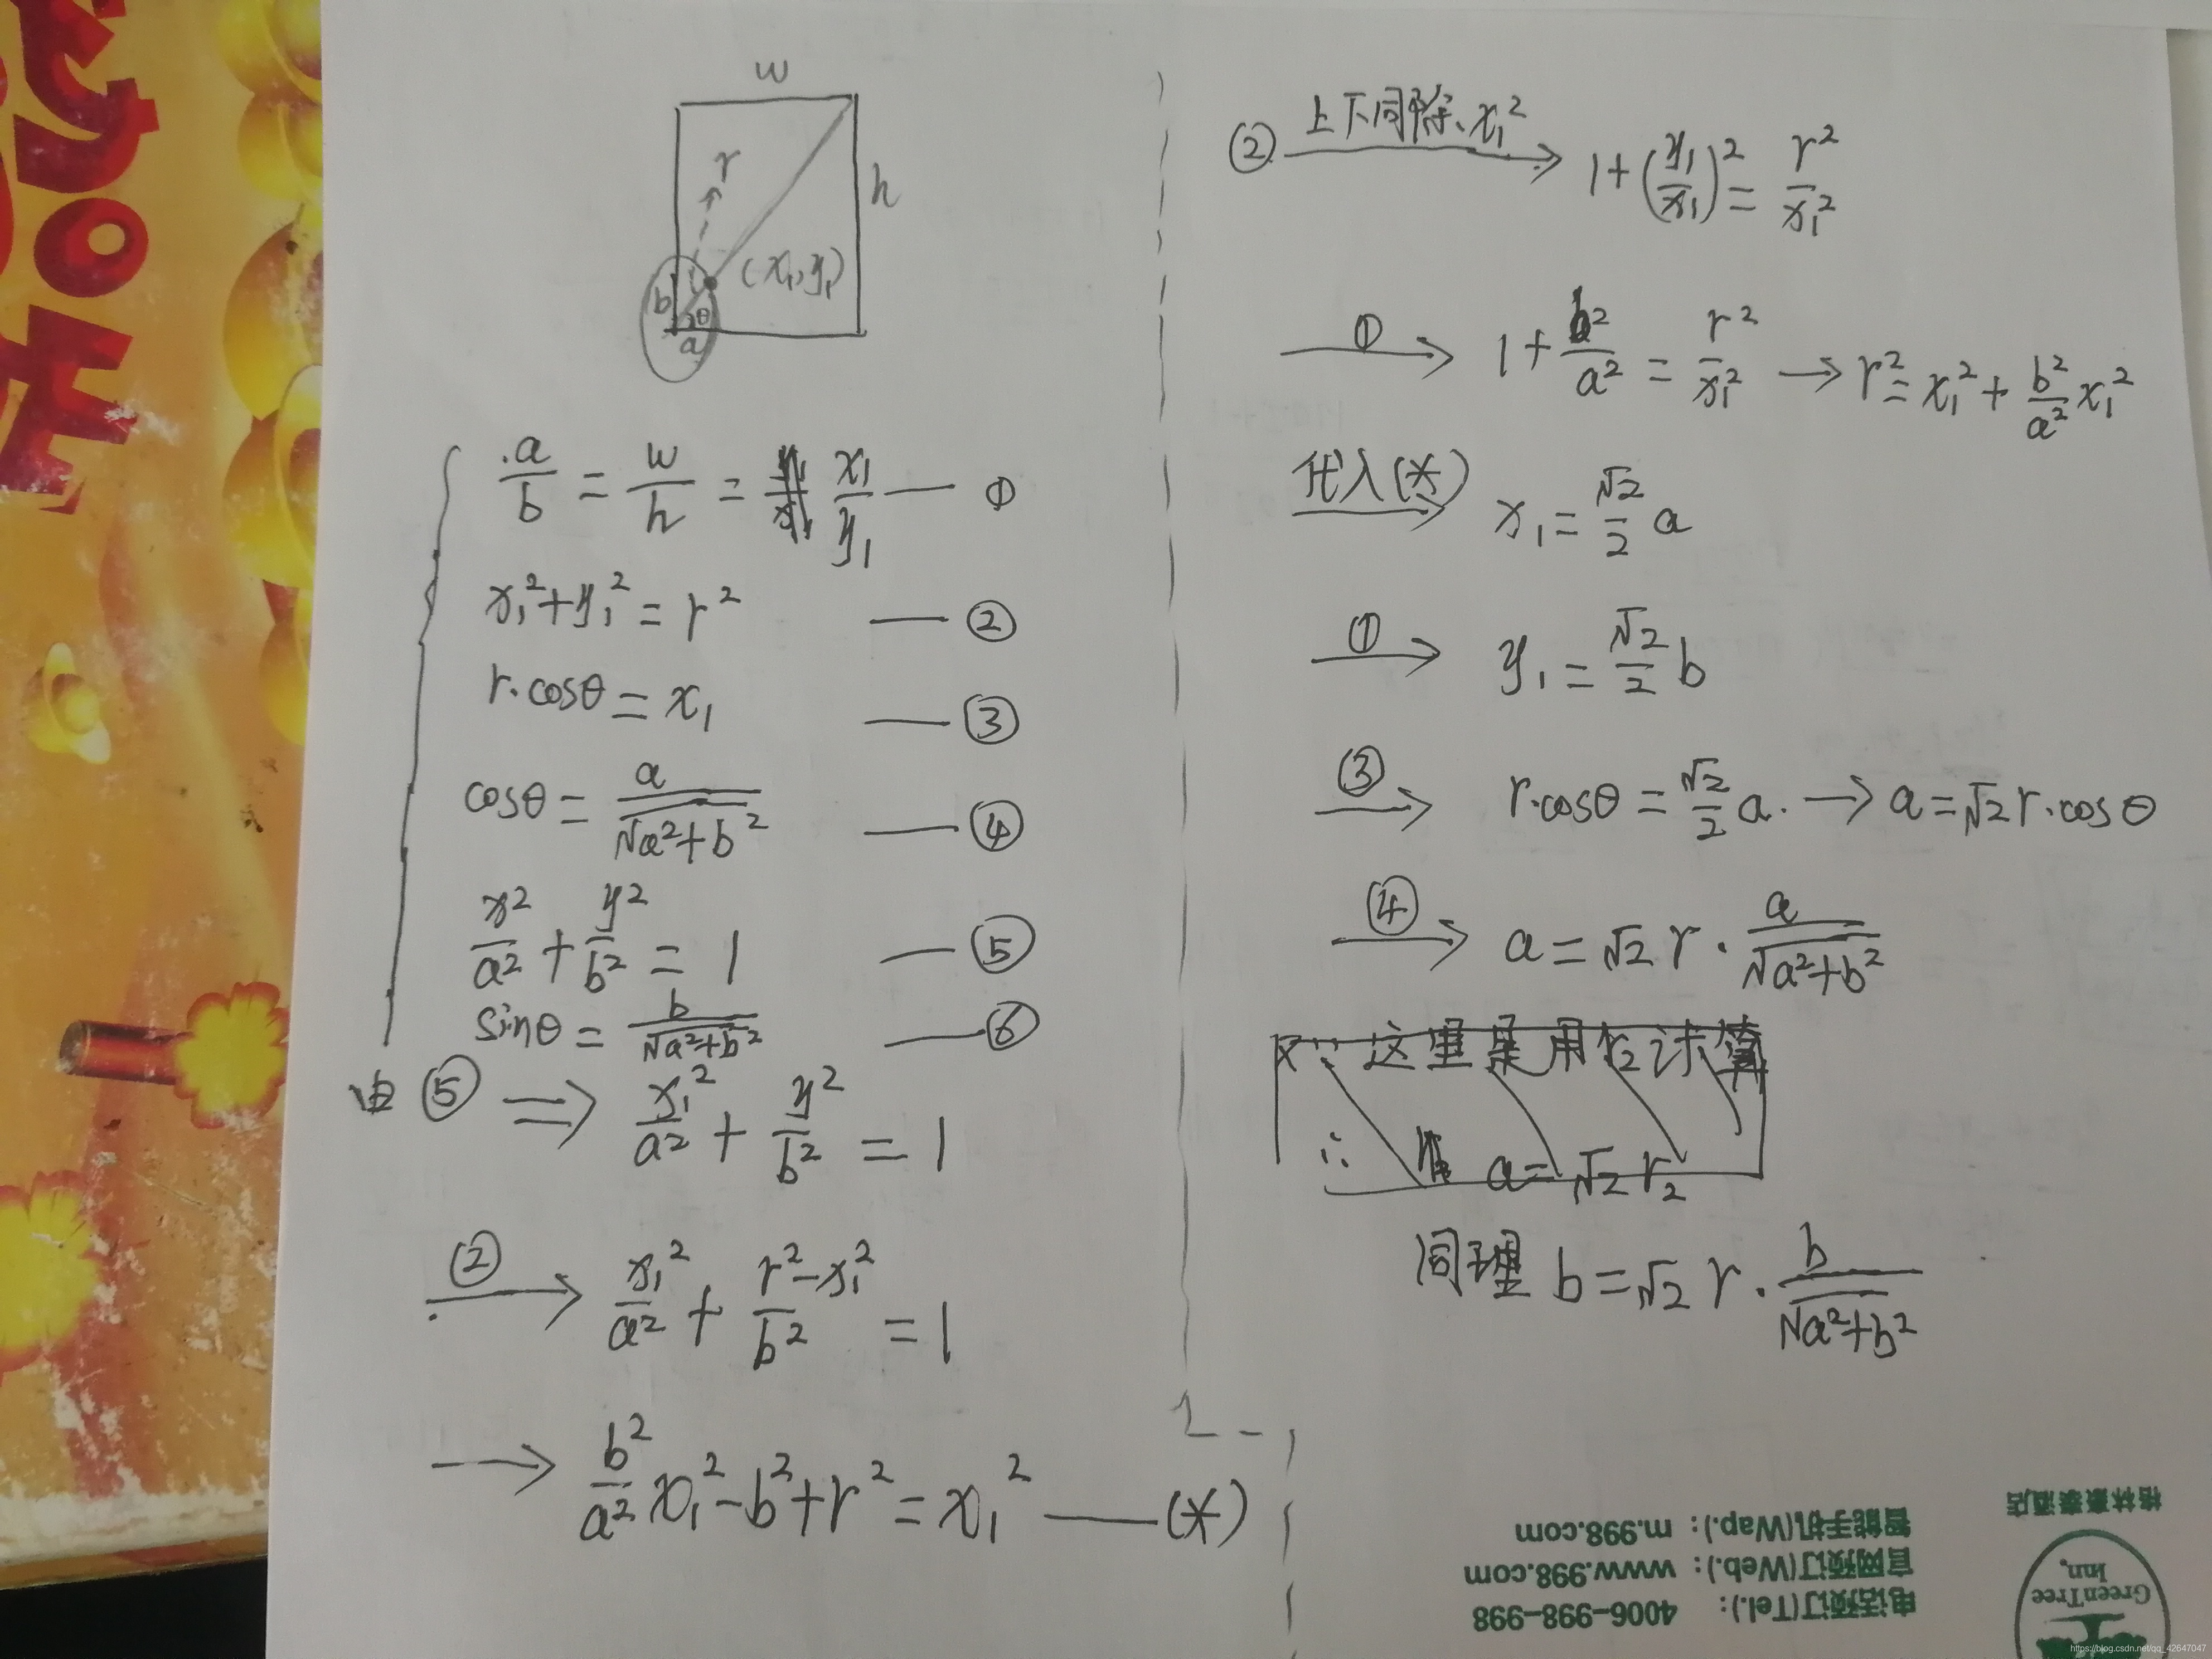 w
r
h
(x₁,y₁)
b
θ
a
a/b = w/h = x₁/y₁ — ①
x₁²+y₁² = r² — ②
r·cosθ = x₁ — ③
cosθ = a/√(a²+b²) — ④
x²/a² + y²/b² = 1 — ⑤
sinθ = b/√(a²+b²) — ⑥
由 ⑤ ⟹ x₁²/a² + y²/b² = 1
②→ x₁²/a² + (r²-x₁²)/b² = 1
→ b²/a² x₁² - b² + r² = x₁² — (*)
② 上下同除、x₁² → 1+(y₁/x₁)² = r²/x₁²
①→ 1 + b²/a² = r²/x₁² → r² = x₁² + b²/a² x₁²
代入(*)→ x₁ = √2/2 a
①→ y₁ = √2/2 b
③→ r·cosθ = √2/2 a. → a = √2 r·cosθ
④→ a = √2 r · a/√(a²+b²)
这里是用r₂计算
∴ a = √2 r₂
同理 b = √2 r · b/√(a²+b²)
格林豪泰酒店
GreenTree
Inn
电话预订(Tel.): 4006-998-998
官网预订(Web.): www.998.com
智能手机(Wap.): m.998.com
https://blog.csdn.net/qq_42647047